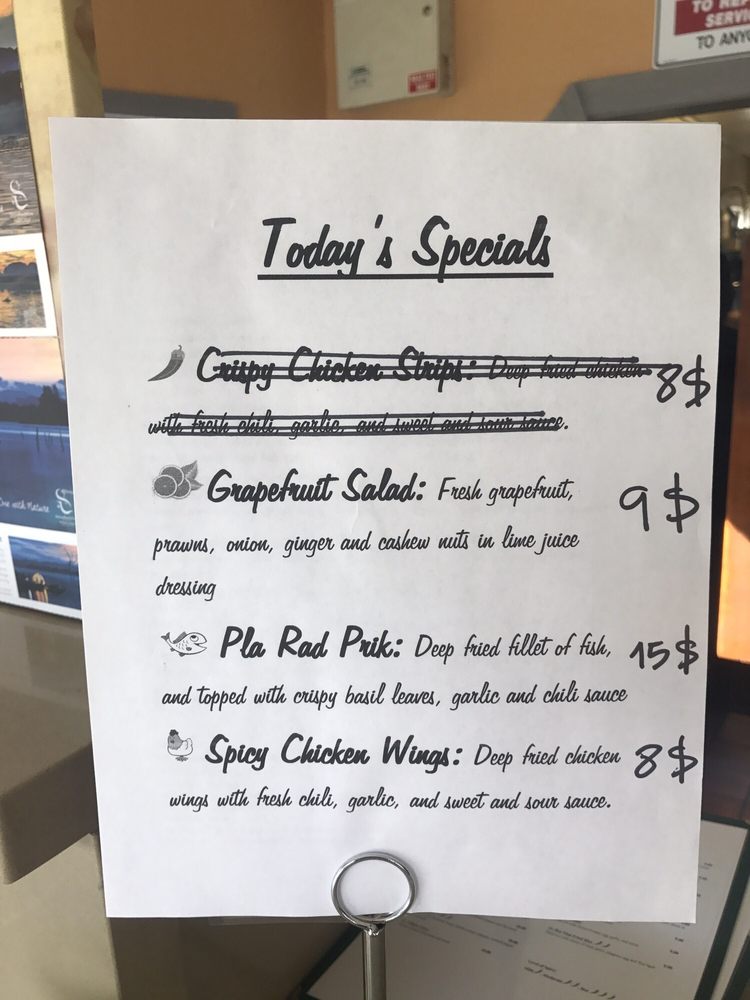 TO REF
SERVI
TO ANYO
Today's Specials
Crispy Chicken Strips: Deep fried chicken 8$
with fresh chili, garlic, and sweet and sour sauce.
Grapefruit Salad: Fresh grapefruit, 9$
prawns, onion, ginger and cashew nuts in lime juice
dressing
Pla Rad Prik: Deep fried fillet of fish, 15$
and topped with crispy basil leaves, garlic and chili sauce
Spicy Chicken Wings: Deep fried chicken 8$
wings with fresh chili, garlic, and sweet and sour sauce.
One with Nature